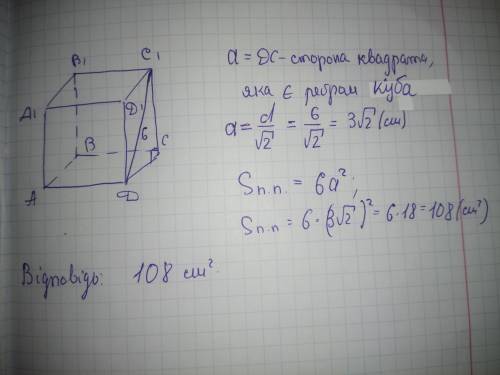 B1 C1
A1 D1
6
B C
A D
a = DC - сторона квадрата,
яка є ребром куба
a = d/√2 = 6/√2 = 3√2 (см)
Sп.п. = 6a²;
Sп.п = 6·(3√2)² = 6·18 = 108 (см²)
Відповідь: 108 см².